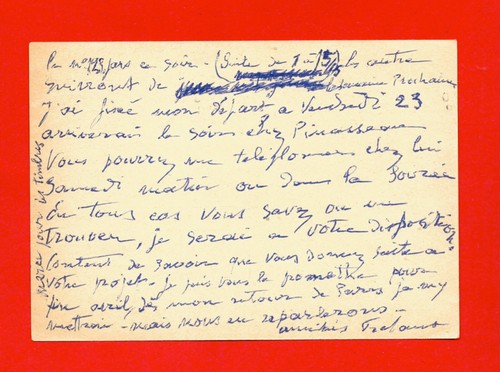 ce soir - (Suite de 1 à 15) les autres
suivront de semaine Prochaine
j'ai fixé mon départ a Vendredi 23
arriverais le soir chez
Vous pourrez me telefoner chez lui
Samedi matin ou dans la Soirée
En tous cas Vous Savez ou me
trouver, je serais a votre Disposition
Content de Savoir que Vous Donnez Suite a
Votre projet - je suis Vous la pour
fin avril, Dès mon retour de Paris je m'y
mettrai - mais nous en reparlerons -
amitiés
merci pour les timbres